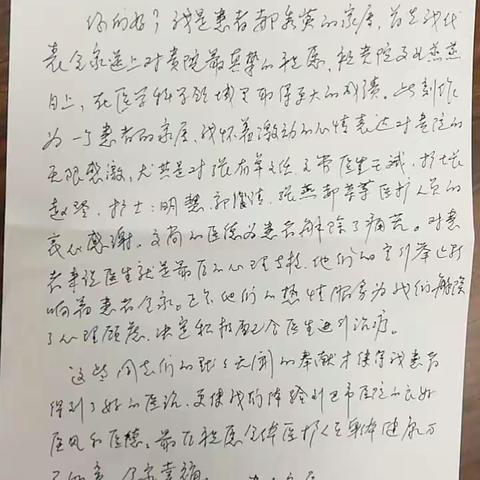 你们好！我是患者郝秀英的家属，首先我代
表全家送上对贵院最真挚的祝愿，祝贵院蒸蒸
日上，在医学科学领域里取得更大的成绩。此刻作
为一个患者的家属，我怀着激动的心情表达对贵院的
无限感激，尤其是对张有年主任，主管医生王斌，护士长
赵琴，护士：明慧，郭，张燕都等等医护人员的
衷心感谢。高尚的医德为患者解除了痛苦。对患
者来说医生就是最大的心理支柱，他们的言行举止影
响着患者全家。正是他们的热情服务为我们解除
了心理顾虑，决定积极配合医生进行治疗。
这些同志们的默默无闻的奉献才使得我患者
得到了好的医治，更使我们体验到巴市医院的良好
医风和医德。最后祝愿全体医护人员身体健康，万
事如意，全家幸福。